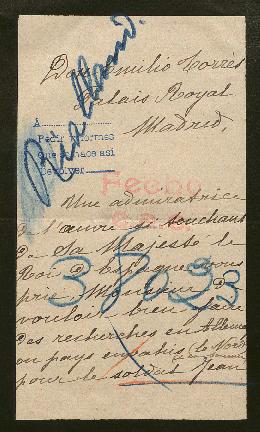 Don Emilio Torrès
Palais Royal
Madrid.
A
Pedir informes
Que se hace así
Devolver
Hecho
Une admiratrice
de l'œuvre si touchante
de Sa Majesté le
Roi d'Espagne vous
prie Monsieur de
vouloir bien faire
des recherches en Allemagne
ou pays envahis (le Nord
pour le soldat Jean